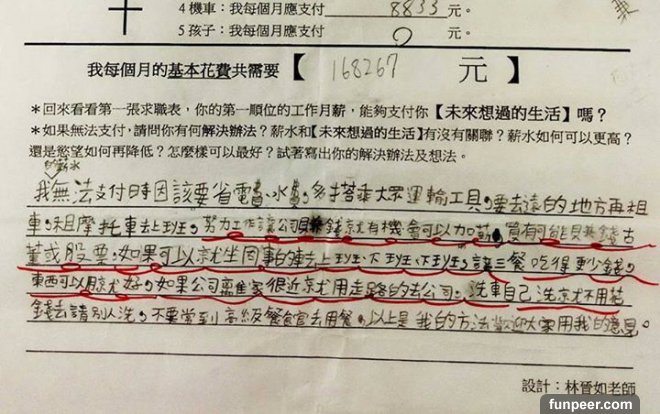 4 機車：我每個月應支付 8833 元。
5 孩子：我每個月應支付 0 元。
我每個月的基本花費共需要【 168267 元 】
＊回來看看第一張求職表，你的第一順位的工作月薪，能夠支付你【未來想過的生活】嗎？
＊如果無法支付，請問你有何解決辦法？薪水和【未來想過的生活】有沒有關聯？薪水如何可以更高？
還是慾望如何再降低？怎麼樣可以最好？試著寫出你的解決辦法及想法。
的薪水
我無法支付時因該要省電費、水費。多搭乘大眾運輸工具。要去遠的地方再租
車。租摩托車去上班。努力工作讓公司賺錢就有機會可以加薪。買有可能賺錢古
董或股票。如果可以就坐同事的車去上班、下班。讓三餐吃得更少錢。
東西可以用就好。如果公司離家很近就用走路的去公司。洗車自己洗就不用花
錢去請別人洗。不要常到高級餐館去用餐。以上是我的方法歡迎大家用我的意見。
設計：林晉如老師
funpeer.com